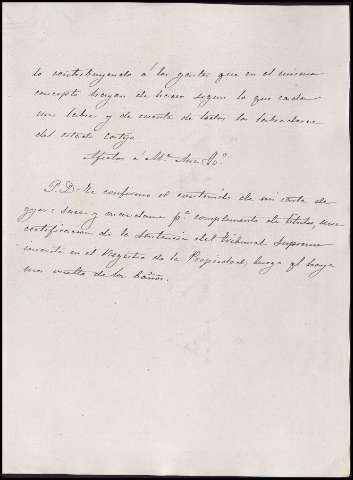 to contribuyendo á los gastos que en el mismo
concepto hayan de hacer segun lo que cada
uno labre y de cuenta de todos los labradores
del citado cortijo
Afectos á Mª
P.D. Le confirmo el contenido de mi carta de
ayer: saque y mandame pª complemento de titulos, una
certificacion de la Sentencia del Tribunal Supremo
inscrita en el Registro de la Propiedad, luego qe haya
una vuelta de los baños.